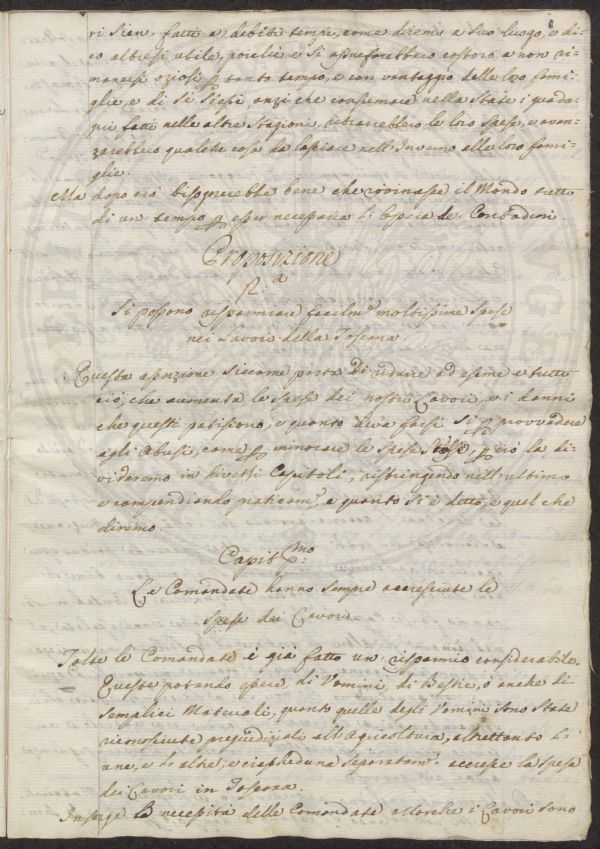 6
ri sien fatti a debiti tempi, come diremo a suo luogo, e di-
co altresì utile, poichè e si assuefarebbero costoro a non ri-
manersi oziosi p tanto tempo, e con vantaggio delle loro fami-
glie, e di se stessi, anzi che consumare nella State i guada-
gni fatti nelle altre Stagioni, le loro spese, e avan-
zerebbero qualche cosa da lasciare nell'Inverno alle loro fami-
glie.
Ma dopo ciò bisognerebbe bene che rovinasse il Mondo tutto
di un tempo p esser necessaria l'opera de Contadini.
Proposizione
p.a
Si possono risparmiare facilm.e moltissime spese
nei Lavori della Toscana.
Questa asserzione siccome porta di ridurre ad esame e tutto
ciò, che aumenta le spese dei nostri Lavori, e i danni
che questi patiscono, e quanto deva farsi sì p provvedere
agli Abusi, come p minorare le spese stesse, p ciò la di-
videremo in diversi Capitoli, ristringendo nell'ultimo
e compendiando praticam.e, e quanto si è detto, e quel che
diremo.
Capit. pmo
Le Comandate hanno sempre accresciute le
spese dei Lavori
Tolte le Comandate è già fatto un risparmio considerabile.
Queste potendo essere di Uomini, di Bestie, o anche di
semplici Materiali, quanto quelle degli Uomini sono state
riconosciute pregiudiziali all'Agricoltura, altrettanto le
une, e le altre, e ciascheduna separatam.e accresce la spesa
dei Lavori in Toscana.
Insorge la necessità delle Comandate allorchè i Lavori sono